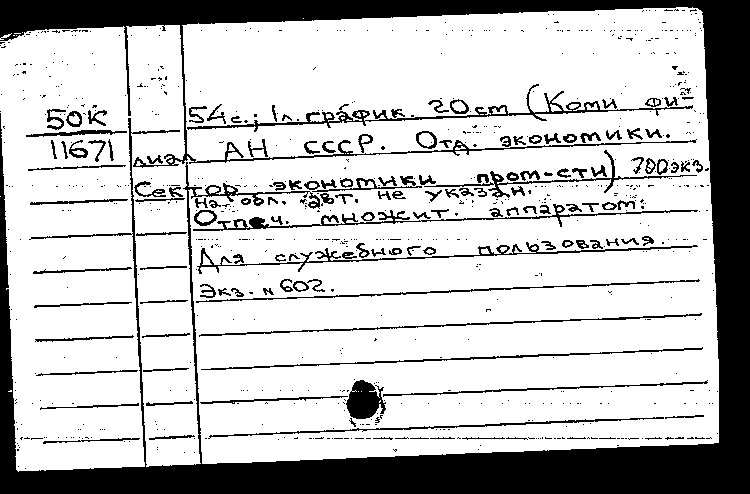 50К
11671
54с.; 1л.график. 20cm (Коми фи-
лиал АН СССР. Отд. экономики.
Сектор экономики пром-сти) 700экз.
На обл. авт. не указан.
Отпеч. множит. аппаратом.
Для служебного пользования.
Экз. № 602.